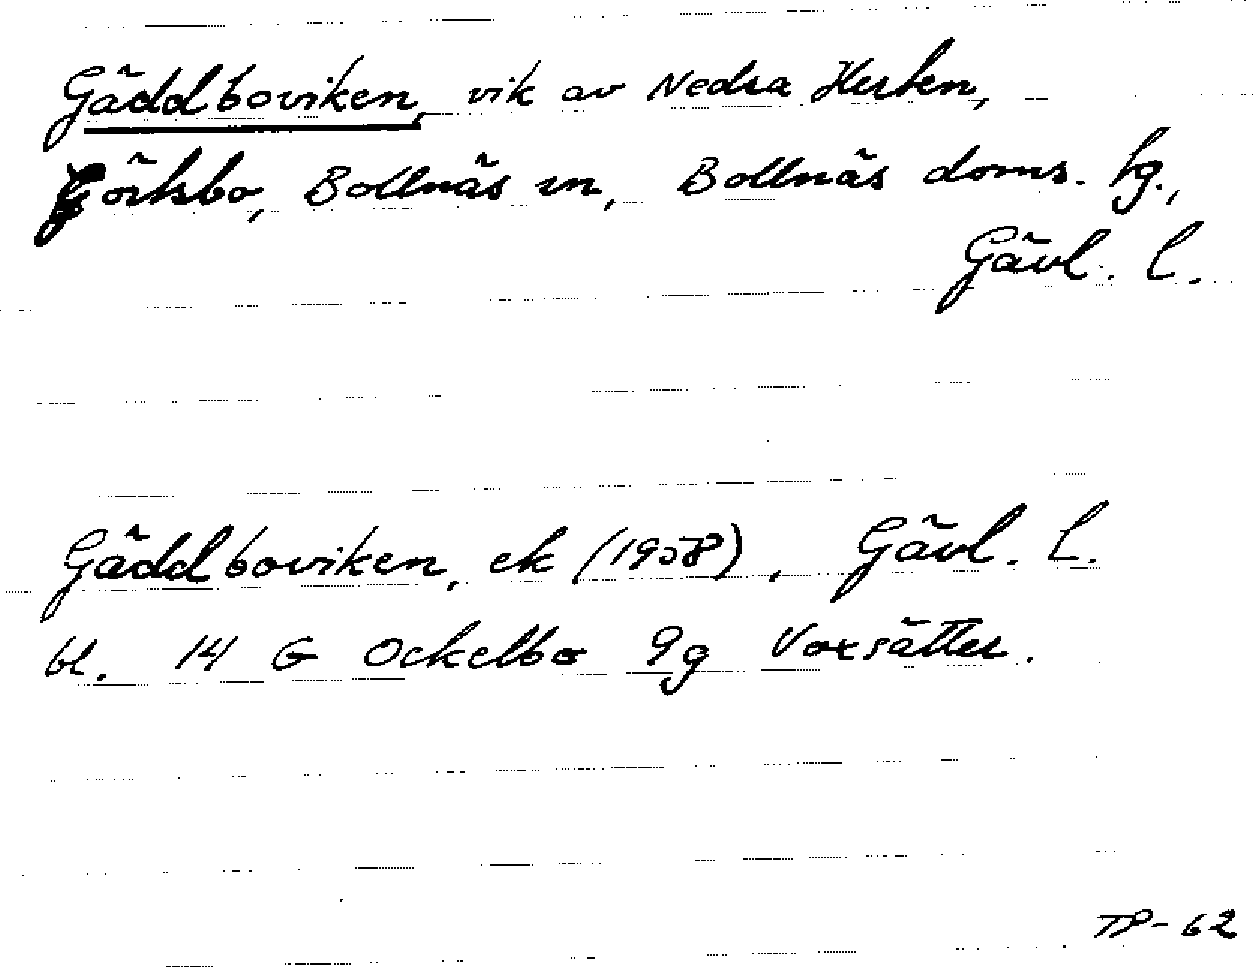 Gäddboviken, vik av Nedra Hesten,
Görtsbo, Bollnäs sn, Bollnäs doms. hg.,
Gävl. l.
Gäddboviken, ek (1958), Gävl. l.
bl. 14 G Ockelbo 9g Voxsätter.
TP-62